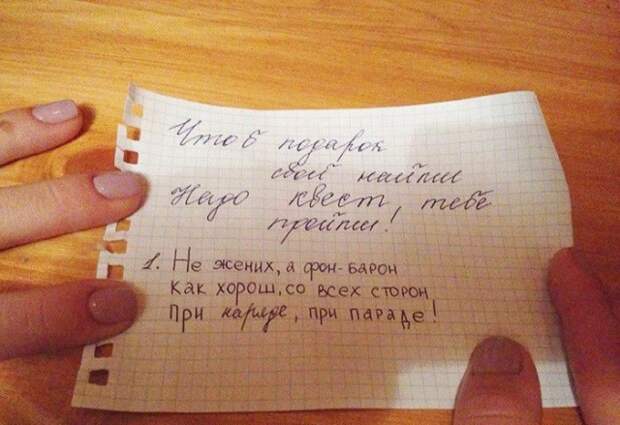 Чтоб подарок
свой найти
Надо квест, тебе
пройти!
1. Не жених, а фон-барон
Как хорош, со всех сторон
При наряде, при параде!